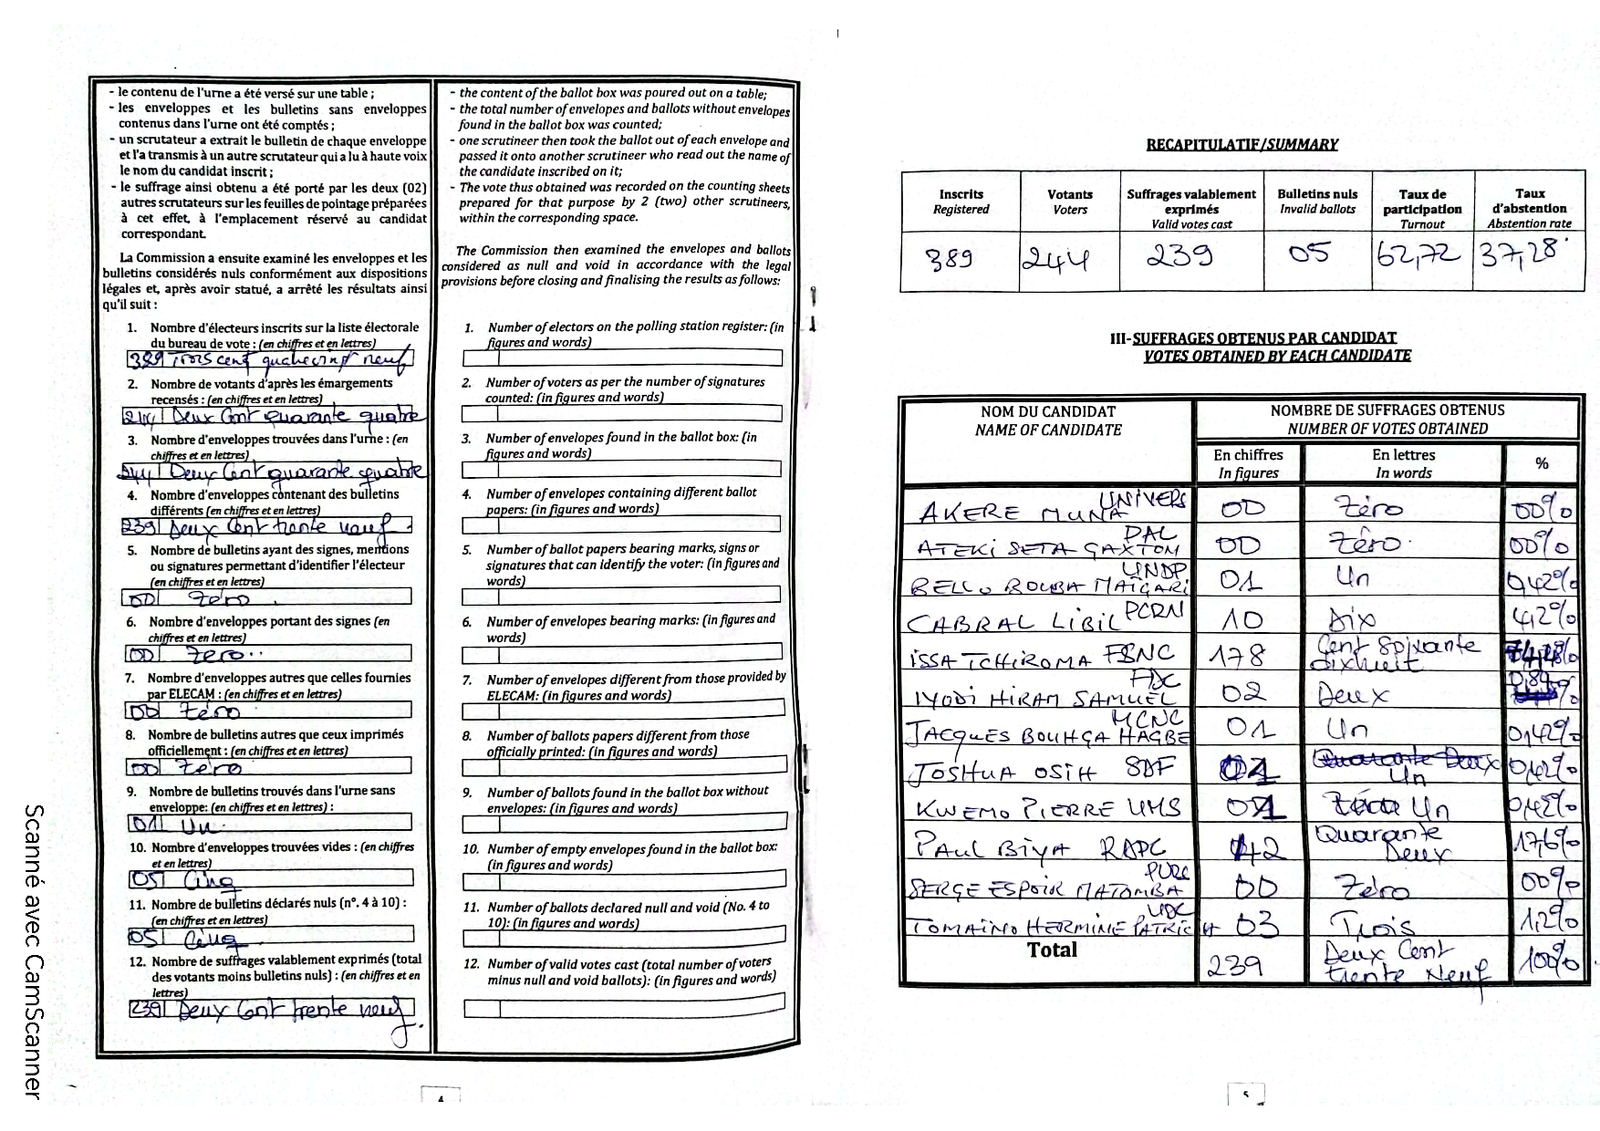 - le contenu de l'urne a été versé sur une table ;
- les enveloppes et les bulletins sans enveloppes
contenus dans l'urne ont été comptés ;
- un scrutateur a extrait le bulletin de chaque enveloppe
et l'a transmis à un autre scrutateur qui a lu à haute voix
le nom du candidat inscrit ;
- le suffrage ainsi obtenu a été porté par les deux (02)
autres scrutateurs sur les feuilles de pointage préparées
à cet effet, à l'emplacement réservé au candidat
correspondant.
La Commission a ensuite examiné les enveloppes et les
bulletins considérés nuls conformément aux dispositions
légales et, après avoir statué, a arrêté les résultats ainsi
qu'il suit :
1. Nombre d'électeurs inscrits sur la liste électorale
du bureau de vote : (en chiffres et en lettres)
389 Trois cent quatrevingt neuf
2. Nombre de votants d'après les émargements
recensés : (en chiffres et en lettres)
244 Deux Cent quarante quatre
3. Nombre d'enveloppes trouvées dans l'urne : (en
chiffres et en lettres)
244 Deux Cent quarante quatre
4. Nombre d'enveloppes contenant des bulletins
différents (en chiffres et en lettres)
239 Deux Cent trente neuf
5. Nombre de bulletins ayant des signes, mentions
ou signatures permettant d'identifier l'électeur
(en chiffres et en lettres)
00 Zéro
6. Nombre d'enveloppes portant des signes (en
chiffres et en lettres)
00 Zero
7. Nombre d'enveloppes autres que celles fournies
par ELECAM : (en chiffres et en lettres)
00 Zéro
8. Nombre de bulletins autres que ceux imprimés
officiellement : (en chiffres et en lettres)
00 Zéro
9. Nombre de bulletins trouvés dans l'urne sans
enveloppe: (en chiffres et en lettres) :
01 Un
10. Nombre d'enveloppes trouvées vides : (en chiffres
et en lettres)
05 Cinq
11. Nombre de bulletins déclarés nuls (n°. 4 à 10) :
(en chiffres et en lettres)
05 Cinq
12. Nombre de suffrages valablement exprimés (total
des votants moins bulletins nuls) : (en chiffres et en
lettres)
239 Deux Cent trente neuf
- the content of the ballot box was poured out on a table;
- the total number of envelopes and ballots without envelopes
found in the ballot box was counted;
- one scrutineer then took the ballot out of each envelope and
passed it onto another scrutineer who read out the name of
the candidate inscribed on it;
- The vote thus obtained was recorded on the counting sheets
prepared for that purpose by 2 (two) other scrutineers,
within the corresponding space.
The Commission then examined the envelopes and ballots
considered as null and void in accordance with the legal
provisions before closing and finalising the results as follows:
1. Number of electors on the polling station register: (in
figures and words)
2. Number of voters as per the number of signatures
counted: (in figures and words)
3. Number of envelopes found in the ballot box: (in
figures and words)
4. Number of envelopes containing different ballot
papers: (in figures and words)
5. Number of ballot papers bearing marks, signs or
signatures that can identify the voter: (in figures and
words)
6. Number of envelopes bearing marks: (in figures and
words)
7. Number of envelopes different from those provided by
ELECAM: (in figures and words)
8. Number of ballots papers different from those
officially printed: (in figures and words)
9. Number of ballots found in the ballot box without
envelopes: (in figures and words)
10. Number of empty envelopes found in the ballot box:
(in figures and words)
11. Number of ballots declared null and void (No. 4 to
10): (in figures and words)
12. Number of valid votes cast (total number of voters
minus null and void ballots): (in figures and words)
RECAPITULATIF/SUMMARY
Inscrits Registered Votants Voters Suffrages valablement exprimés Valid votes cast Bulletins nuls Invalid ballots Taux de participation Turnout Taux d'abstention Abstention rate
389 244 239 05 62,72 37,28
III-SUFFRAGES OBTENUS PAR CANDIDAT
VOTES OBTAINED BY EACH CANDIDATE
NOM DU CANDIDAT NOMBRE DE SUFFRAGES OBTENUS
NAME OF CANDIDATE NUMBER OF VOTES OBTAINED
En chiffres En lettres %
In figures In words
AKERE MUNA UNIVERS 00 Zéro 00%
ATEKI SETA GAXTOM PAL 00 Zéro 00%
BELLO BOUBA MAIGARI UNDP 01 Un 0,42%
CABRAL LIBII PCRN 10 Dix 4,2%
ISSA TCHIROMA FSNC 178 Cent Soixante dixhuit
IYODI HIRAM SAMUEL FDC 02 Deux 0,84
JACQUES BOUHGA HAGBE MCNC 01 Un 0,42%
JOSHUA OSIH SDF 01 Un 0,42%
KWEMO PIERRE UMS 01 Un 0,42%
PAUL BIYA RDPC 42 Quarante Deux 17,6%
SERGE ESPOIR MATOMBA PURC 00 Zéro 00%
TOMAINO HERMINE PATRICIA UDC 03 Trois 1,2%
Total 239 Deux Cent trente Neuf 100%
4
5
Scanné avec CamScanner